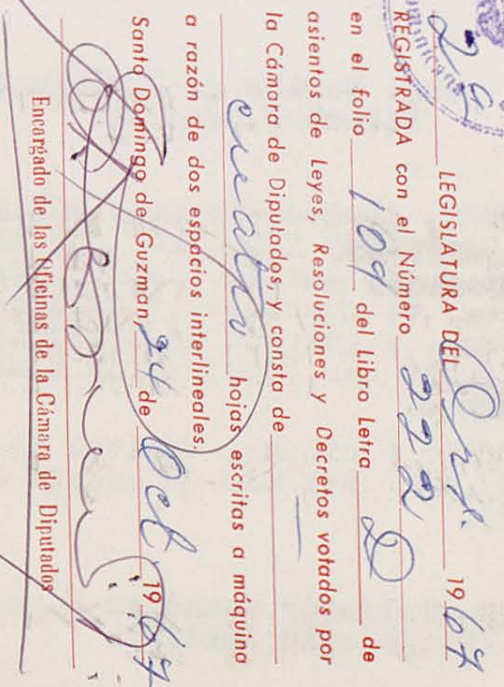 2a LEGISLATURA DEL Ord. 1967
REGISTRADA con el Número 222
en el folio 109 del Libro Letra D de
asientos de Leyes, Resoluciones y Decretos votados por
la Cámara de Diputados, y consta de
cuatro hojas escritas a máquina
a razón de dos espacios interlineales.
Santo Domingo de Guzman, 24 de Oct. 1967
Encargado de las Oficinas de la Cámara de Diputados